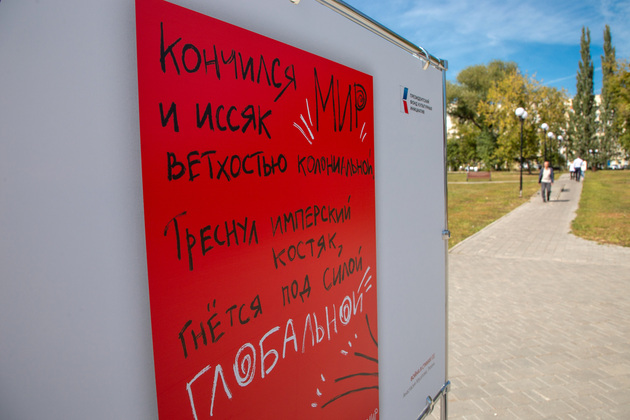 КОНЧИЛСЯ МИР
И ИССЯК
ВЕТХОСТЬЮ КОЛОНИАЛЬНОЙ
ТРЕСНУЛ ИМПЕРСКИЙ
КОСТЯК,
ГНЁТСЯ ПОД СИЛОЙ
ГЛОБАЛЬНОЙ
ПРЕЗИДЕНТСКИЙ
ФОНД КУЛЬТУРНЫХ
ИНИЦИАТИВ